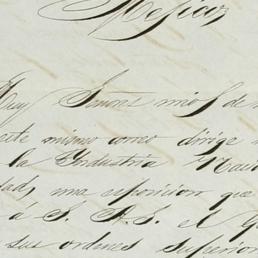 Mexico
Muy Señores mios: S de
este mismo correo dirige
la Industria Nac
dad, una esposicion que
á S. A. S. el G
sus ordenes superior